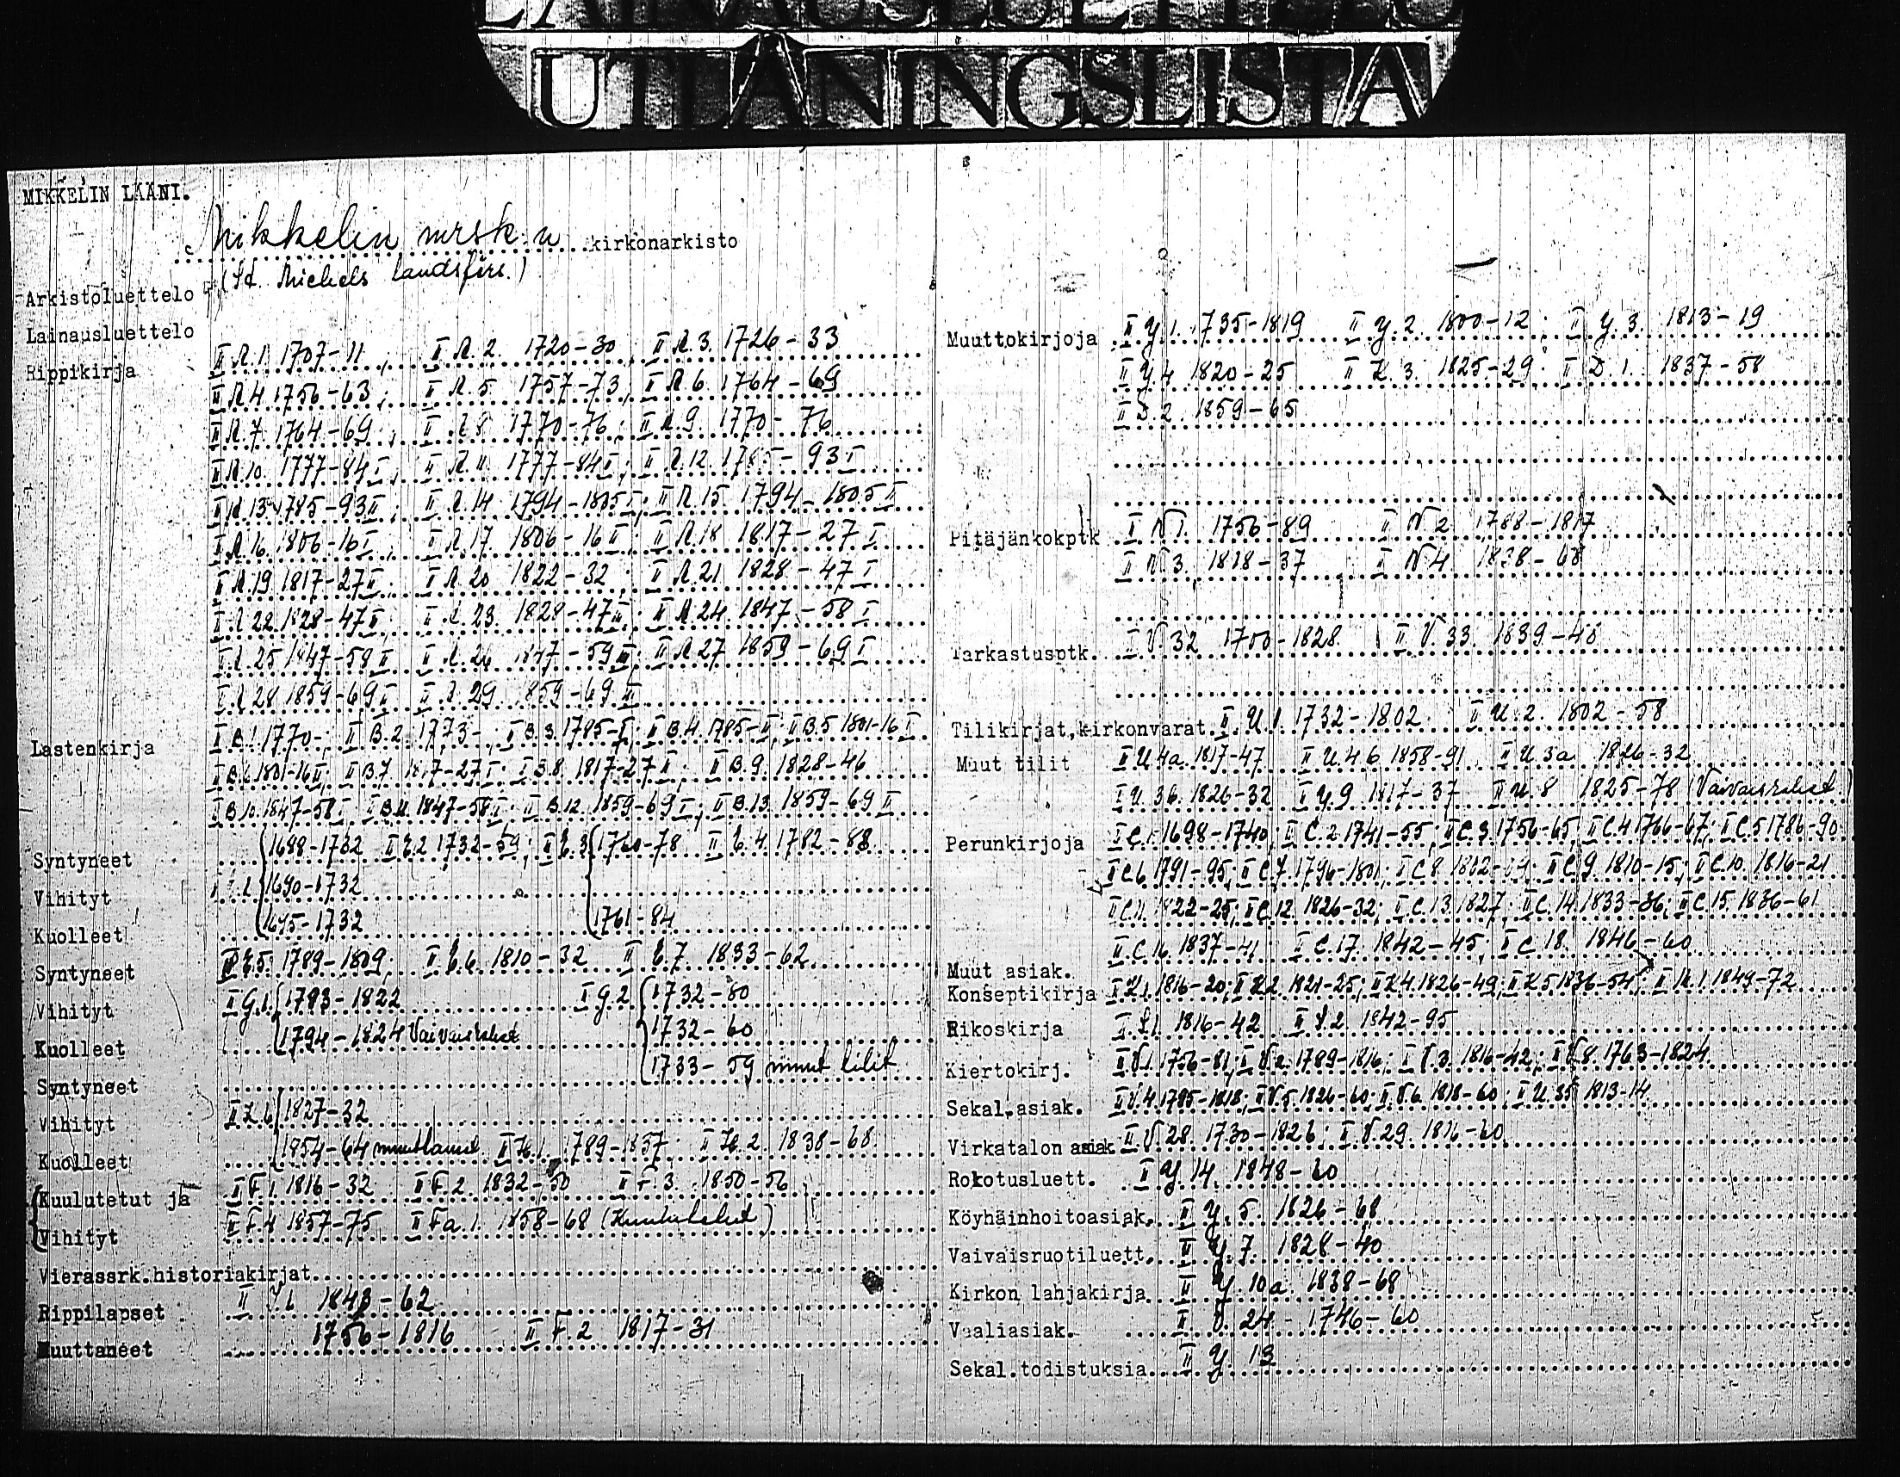 LAINAUSLUETTELO
UTLÅNINGSLISTA
MIKKELIN LÄÄNI.
Mikkelin mrsk:n kirkonarkisto
(St. Michels landsförs.)
Arkistoluettelo
Lainausluettelo
Rippikirja II R.1. 1707-11, II R.2. 1720-30, II R.3. 1726-33
II R.4. 1756-63, II R.5. 1757-73, II R.6. 1764-69
II R.7. 1764-69, II R.8. 1770-76, II R.9. 1770-76
II R.10. 1777-84 I, II R.11. 1777-84 I, II R.12. 1785-93 I
II R.13. 1785-93 II, II R.14. 1794-1805 I, II R.15. 1794-1805 II
II R.16. 1806-16 I, II R.17. 1806-16 II, II R.18. 1817-27 I
II R.19. 1817-27 II, II R.20. 1822-32, II R.21. 1828-47 I
II R.22. 1828-47 II, II R.23. 1828-47 III, II R.24. 1847-58 I
II R.25. 1847-58 II, II R.26. 1847-59 III, II R.27. 1859-69 I
II R.28. 1859-69 II, II R.29. 1859-69 III
Lastenkirja II B.1. 1770-, II B.2. 1773-, II B.3. 1785- I, II B.4. 1785- II, II B.5. 1801-16 I
II B.6. 1801-16 II, II B.7. 1817-27 I, II B.8. 1817-27 II, II B.9. 1828-46
II B.10. 1847-58 I, II B.11. 1847-58 II, II B.12. 1859-69 I, II B.13. 1859-69 II
Syntyneet 1688-1732 II E.2 1732-59, II E.3 1760-78 II E.4. 1782-88
Vihityt 1690-1732
Kuolleet 1695-1732 1761-84
Syntyneet II E.5. 1789-1809, II E.6. 1810-32 II E.7. 1833-62
Vihityt II G.1. 1793-1822 II G.2. 1732-80
Kuolleet 1794-1824 Vaivaisrahat 1732-60
Syntyneet 1733-59 muut tilit
Vihityt 1827-32
Kuolleet II H.1. 1789-1837 II H.2. 1838-68
Kuulutetut ja II F.1. 1816-32 II F.2. 1832-50 II F.3. 1850-56
Vihityt II F.4. 1857-75 II Fa.1. 1858-68 (Kuulutetut)
Vierassrk.historiakirjat
Rippilapset 1843-62
Muuttaneet 1756-1816 II F.2 1817-31
Muuttokirjoja II Y.1. 1735-1819 II Y.2. 1800-12, II Y.3. 1813-19
II Y.4. 1820-25 II K.3. 1825-29, II D.1. 1837-58
II D.2. 1859-65
Pitäjänkokptk II N.1. 1756-89 II N.2. 1788-1817
II N.3. 1818-37 II N.4. 1838-68
Tarkastusptk. II V.32 1700-1828 II V.33. 1839-48
Tilikirjat,kirkonvarat II U.1. 1732-1802 II U.2. 1802-58
Muut tilit II U.4a. 1817-47 II U.4b. 1858-91 II U.3a. 1826-32
II U.3b. 1826-32 II Y.9. 1817-37 II U.8 1825-78 (Vaivaisrahat)
Perunkirjoja II C.1. 1698-1740, II C.2. 1741-55, II C.3. 1756-65, II C.4. 1766-67, II C.5. 1786-90
II C.6. 1791-95, II C.7. 1796-1801, II C.8. 1802-09, II C.9. 1810-15, II C.10. 1816-21
II C.11. 1822-25, II C.12. 1826-32, II C.13. 1827, II C.14. 1833-36, II C.15. 1836-61
II C.16. 1837-41 II C.17. 1842-45, II C.18. 1846-60
Muut asiak.
Konseptikirja II K.1. 1816-20, II K.2. 1821-25, II K.4. 1826-49, II K.5. 1836-54, II K.1. 1849-72
Rikoskirja 1816-42 1842-95
Kiertokirj. II V.1. 1756-81, II V.2. 1789-1816, II V.3. 1816-42, II V.8. 1763-1824
Sekal.asiak. II V.4. 1785-1818, II V.5. 1826-60, II V.6. 1818-60, II U.35 1813-14
Virkatalon asiak II V.28. 1730-1826, II V.29. 1816-60
Rokotusluett. II Y.14. 1848-60
Köyhäinhoitoasiak. II Y.5. 1826-68
Vaivaisruotiluett. II Y.7. 1828-40
Kirkon lahjakirja II Y.10a 1838-68
Vaaliasiak. II V.24 1746-60
Sekal.todistuksia II Y.13